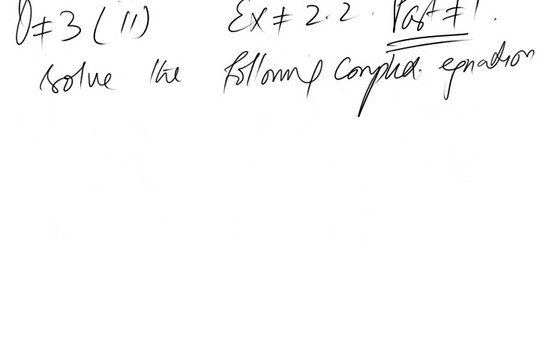 Q # 3 (ii) Ex # 2.2. Part # 1.
solve the following complex equation